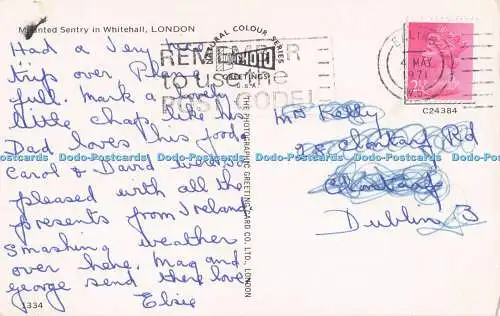 Mounted Sentry in Whitehall, LONDON
Had a very nice
trip over Plane
full. Mark a lovely
little chap, like his
Dad loves his food
Carol & David were so
pleased with all the
presents from Ireland
Smashing weather
over here. Mag and
George send there love
Elsie
1334
NATURAL COLOUR SERIES
GREETINGS
THE PHOTOGRAPHIC GREETING CARD CO. LTD., LONDON
REMEMBER
to use the
POST CODE!
EALING
4 MAY
1971
2½
C24384
Mrs Kelly
Clontarf Rd
Clontarf
Dublin 3
Dodo-Postcards Dodo-Postcards Dodo-Postcards Dodo-Postcards Dodo-Postcards